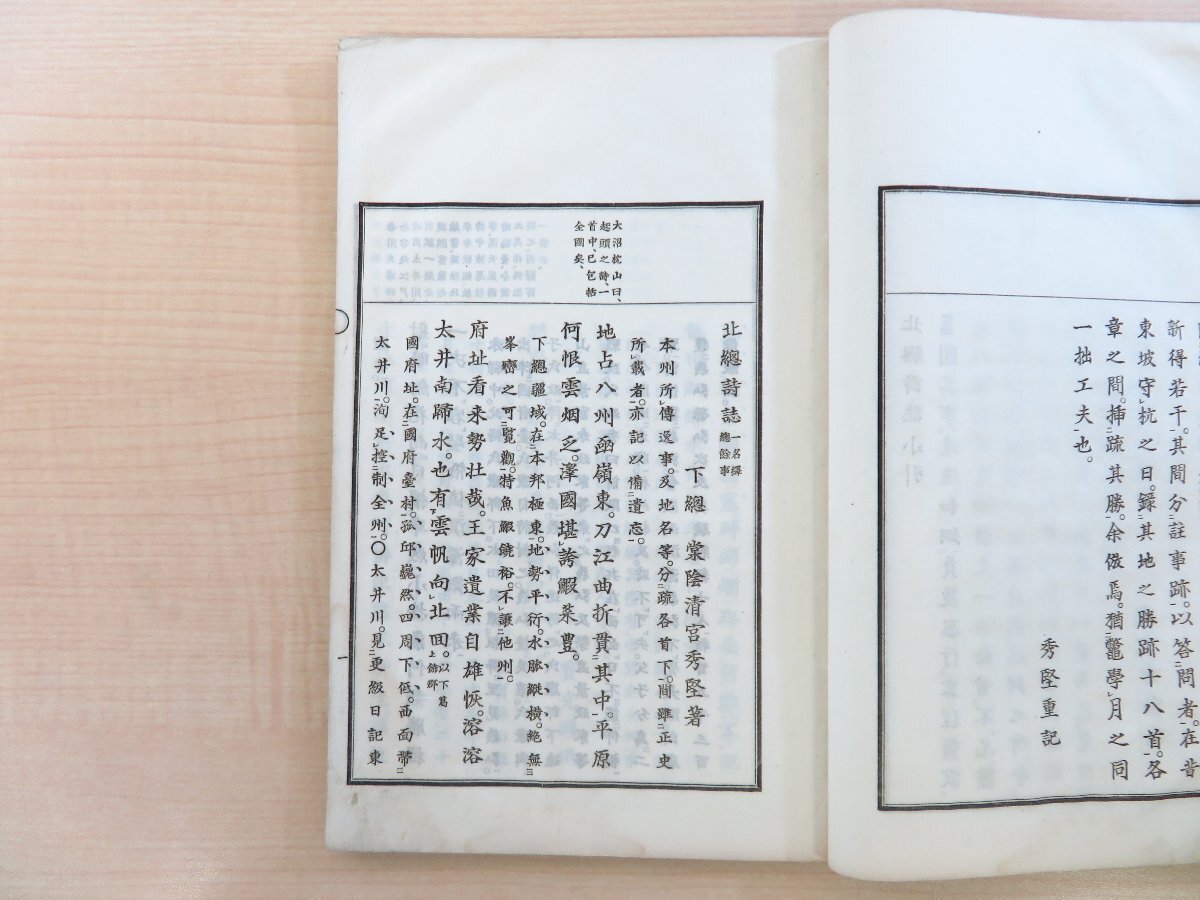 新得若干。其間分註事跡。以答問者。在昔
東坡守杭之日。錄其地之勝跡十八首。各
章之間。揷疏其勝。余倣焉。猶鼈學月之同
一拙工夫也。
秀堅重記
大沼枕山曰、
起頭之詩、一
首中、已包括
全國矣、
北總詩誌 一名繹總餘事
下總 棠陰清宮秀堅著
本州所傳逸事。及地名等。分疏各首下。間雖正史
所載者。亦記以備遺忘。
地占八州函嶺東。刀江曲折貫其中。平原
何恨雲烟乏。澤國堪誇鰕菜豊。
下總疆域。在本邦極東。地勢平衍。水脈縱橫。絶無
峯巒之可覽觀。特魚鰕饒裕。不讓他州。
府址看来勢壮哉。王家遺業自雄恢。溶溶
太井南歸水。也有雲帆向北回。以下葛上餝郡
國府址。在國府臺村。孤邱巍然。四周下低。西面帶
太井川。洵足控制全州。〇太井川。見更級日記東
一